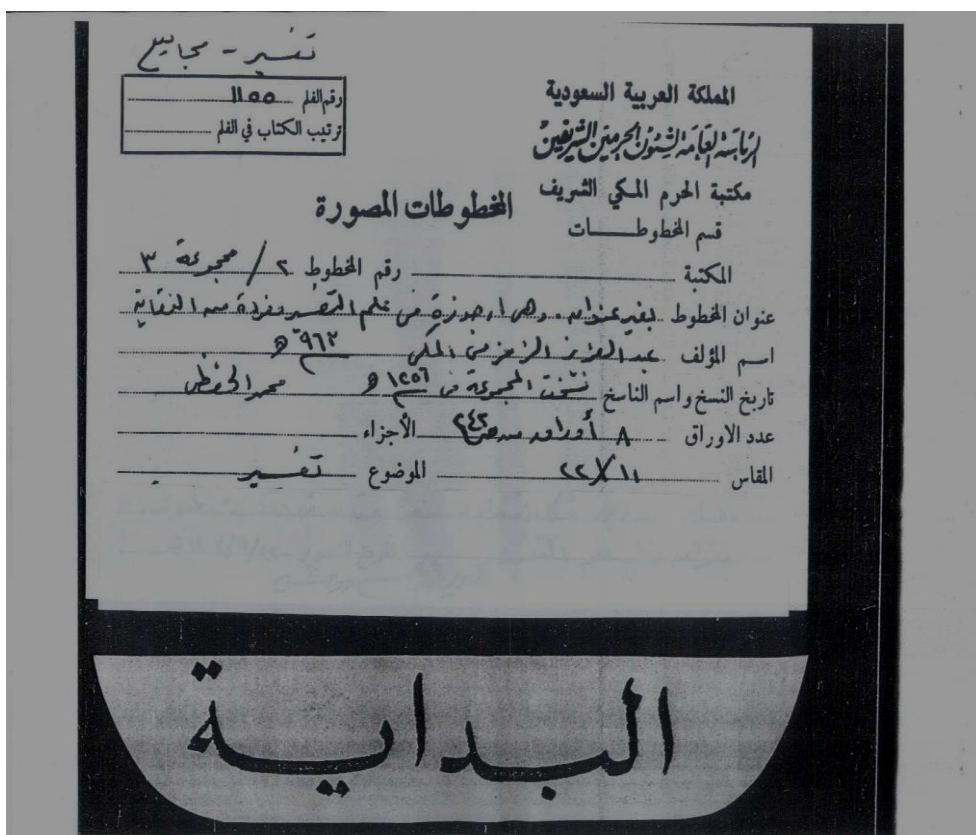 تفسير - مجاميع
رقم الفلم ١١٥٥
ترتيب الكتاب في الفلم
المملكة العربية السعودية
الرئاسة العامة لشئون الحرمين الشريفين
مكتبة الحرم المكي الشريف
قسم المخطوطات
المخطوطات المصورة
المكتبة رقم المخطوط ٢ / مجموعة ٣
عنوان المخطوط بغير عنوان. وهي ارجوزة في علم التفسير مفردة من النقاية
اسم المؤلف عبد العزيز الزمزمي المكي ٩٦٣ هـ
تاريخ النسخ واسم الناسخ نسخت المجموعة في ١٢٥٦ هـ محمد الحفظي
عدد الاوراق ٨ أوراق من ص ٢٤٢ الأجزاء
المقاس ١١ X ٢٢ الموضوع تفسير
البداية